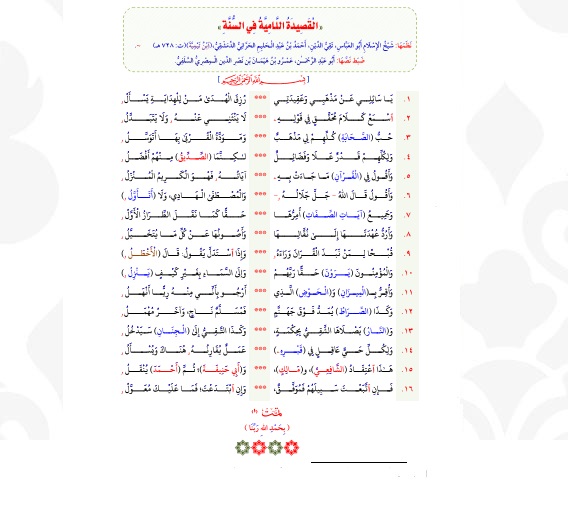 « الْقَصِيدَةُ اللَّامِيَّةُ فِي السُّنَّة »
نَظَمَهَا: شَيْخُ الْإِسْلَامِ أَبُو الْعَبَّاسِ، تَقِيُّ الدِّينِ، أَحْمَدُ بْنُ عَبْدِ الْحَلِيمِ الْحَرَّانِيُّ الدِّمَشْقِيُّ، (ابْنُ تَيْمِيَّةَ) (ت: ٧٢٨ هـ)
ضَبَطَ نَصَّهَا: أَبُو عَبْدِ الرَّحْمَنِ، عَمْرُو بْنُ هَيْمَانَ بْنِ نَصْرِ الدِّينِ الْمِصْرِيُّ السَّلَفِيُّ.
١. يَا سَائِلِي عَنْ مَذْهَبِي وَعَقِيدَتِي *** رُزِقَ الْهُدَىٰ مَنْ لِلْهِدَايَةِ يَسْأَلُ
٢. اسْمَعْ كَلَامَ مُحَقِّقٍ فِي قَوْلِهِ، *** لَا يَنْثَنِي عَنْهُ وَلَا يَتَبَدَّلُ
٣. حُبُّ (الصَّحَابَةِ) كُلِّهِمْ لِي مَذْهَبٌ *** وَمَوَدَّةُ الْقُرْبَىٰ بِهَا أَتَوَسَّلُ
٤. وَلِكُلِّهِمْ قَدْرٌ عَلَا وَفَضَائِلٌ *** لَكِنَّمَا (الصِّدِّيقُ) مِنْهُمْ أَفْضَلُ
٥. وَأَقُولُ فِي (الْقُرْآنِ) مَا جَاءَتْ بِهِ، *** آيَاتُهُ، فَهْوَ الْكَرِيمُ الْمُنْزَلُ
٦. وَأَقُولُ قَالَ اللهُ - جَلَّ جَلَالُهُ - *** وَالْمُصْطَفَىٰ الْهَادِي، وَلَا (أَتَأَوَّلُ)
٧. وَجَمِيعُ (آيَاتِ الصِّفَاتِ) أُمِرُّهَا *** حَقًّا كَمَا نَقَلَ الطِّرَازُ الْأَوَّلُ
٨. وَأَرُدُّ عُهْدَتَهَا إِلَىٰ نُقَّالِهَا *** وَأَصُونُهَا عَنْ كُلِّ مَا يُتَخَيَّلُ
٩. قُبْحًا لِمَنْ نَبَذَ الْقُرَانَ وَرَاءَهُ *** وَإِذَا اسْتَدَلَّ يَقُولُ: قَالَ (الْأَخْطَلُ)
١٠. وَالْمُؤْمِنُونَ (يَرَوْنَ) حَقًّا رَبَّهُمْ *** وَإِلَى السَّمَاءِ بِغَيْرِ كَيْفٍ (يَنْزِلُ)
١١. وَأُقِرُّ بِـ(الْمِيزَانِ) وَ(الْحَوْضِ) الَّذِي *** أَرْجُو بِأَنِّي مِنْهُ رِيًّا أَنْهَلُ
١٢. وَكَذَا (الصِّرَاطُ) يُمَدُّ فَوْقَ جَهَنَّمٍ *** فَمُسَلَّمٌ نَاجٍ، وَآخَرُ مُهْمَلُ
١٣. وَ(النَّارُ) يَصْلَاهَا الشَّقِيُّ بِحِكْمَةٍ، *** وَكَذَا التَّقِيُّ إِلَىٰ (الْجِنَانِ) سَيَدْخُلُ
١٤. وَلِكُلِّ حَيٍّ عَاقِلٍ فِي (قَبْرِهِ) *** عَمَلٌ يُقَارِنُهُ هُنَاكَ وَيُسْأَلُ
١٥. هَذَا اعْتِقَادُ (الشَّافِعِيِّ)، وَ(مَالِكٍ)، *** وَ(أَبِي حَنِيفَةَ)؛ ثُمَّ (أَحْمَدَ) يُنْقَلُ
١٦. فَإِنِ اتَّبَعْتَ سَبِيلَهُمْ فَمُوَفَّقٌ، *** وَإِنِ ابْتَدَعْتَ؛ فَمَا عَلَيْكَ مُعَوَّلُ
تَمَّتْ
( بِحَمْدِ اللهِ رَبِّنَا )